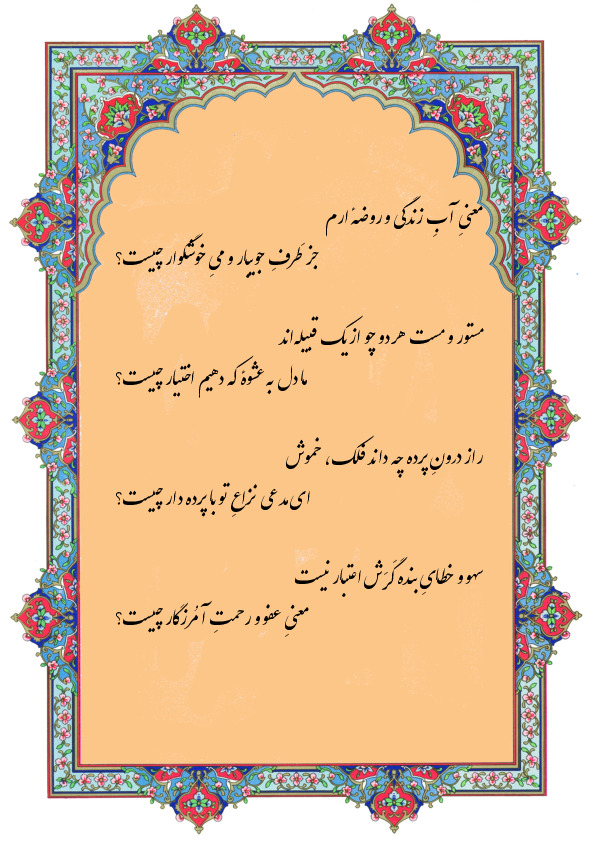 معنیِ آبِ زندگی و روضهٔ ارم
جز طَرفِ جویبار و میِ خوشگوار چیست؟
مستور و مست هر دو چو از یک قبیله‌اند
ما دل به عشوهٔ که دهیم اختیار چیست؟
راز درونِ پرده چه داند فلک، خموش
ای مدعی نزاعِ تو با پرده دار چیست؟
سهو و خطایِ بنده گَرَش اعتبار نیست
معنیِ عفو و رحمتِ آمُرزگار چیست؟